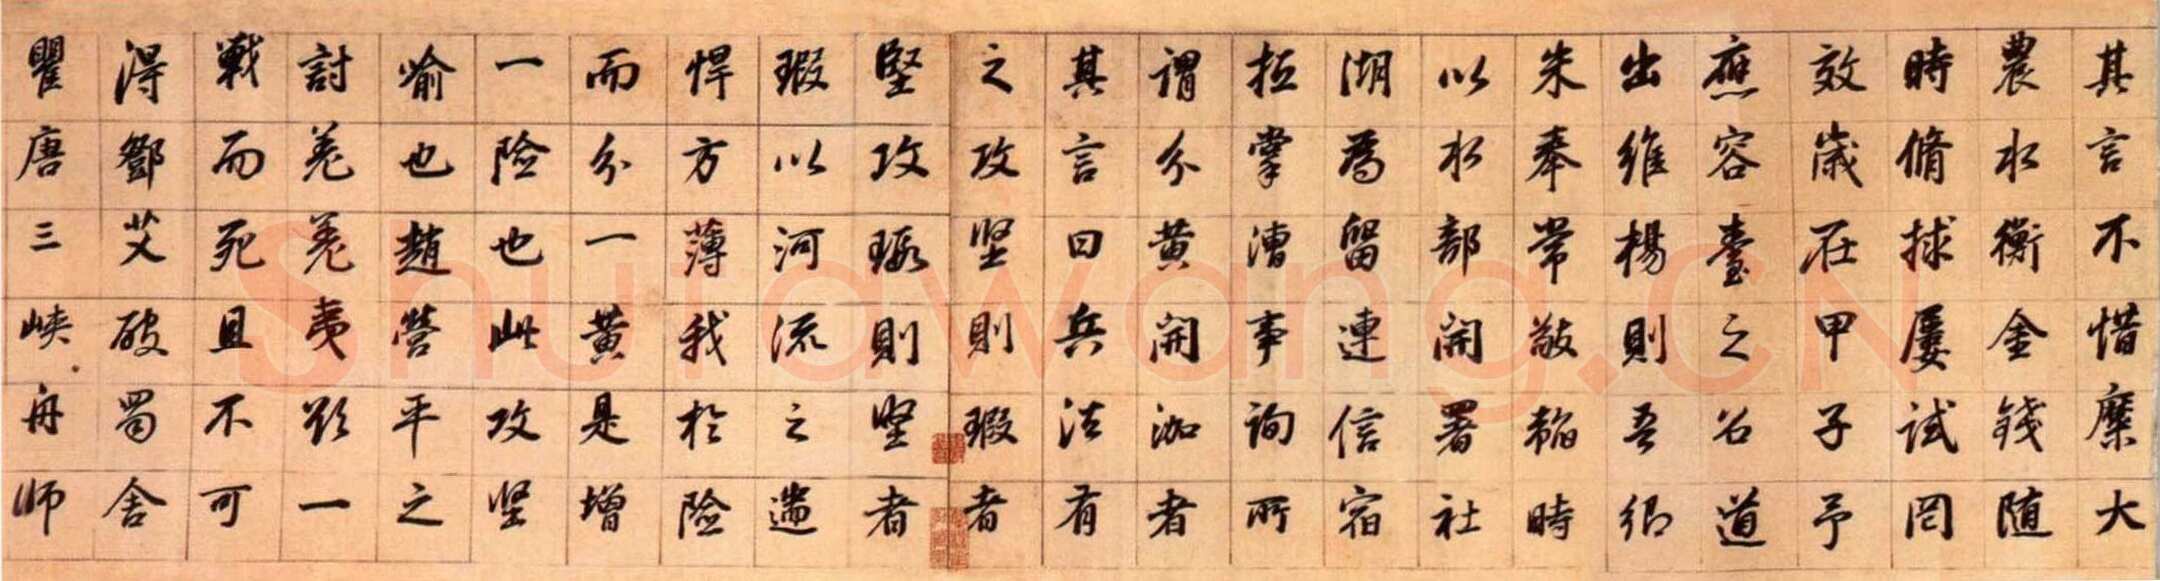 其言不惜糜大
農水衡金錢随
時脩捄屡試罔
效歲在甲子予
應容臺之召道
出維楊則吾鄉
朱奉常敬韜時
以水部開署社
湖為留連信宿
抵掌漕事詢所
謂分黄開泇者
其言曰兵法有
之攻坚則瑕者
堅攻瑕則坚者
瑕以河流之遄
悍方薄我於險
而分一黄是增
一險也此攻坚
喻也趙營平之
討羌羌夷欲一
戰而死且不可
得鄧艾破蜀舍
瞿唐三峡舟師
Shufawang.CN